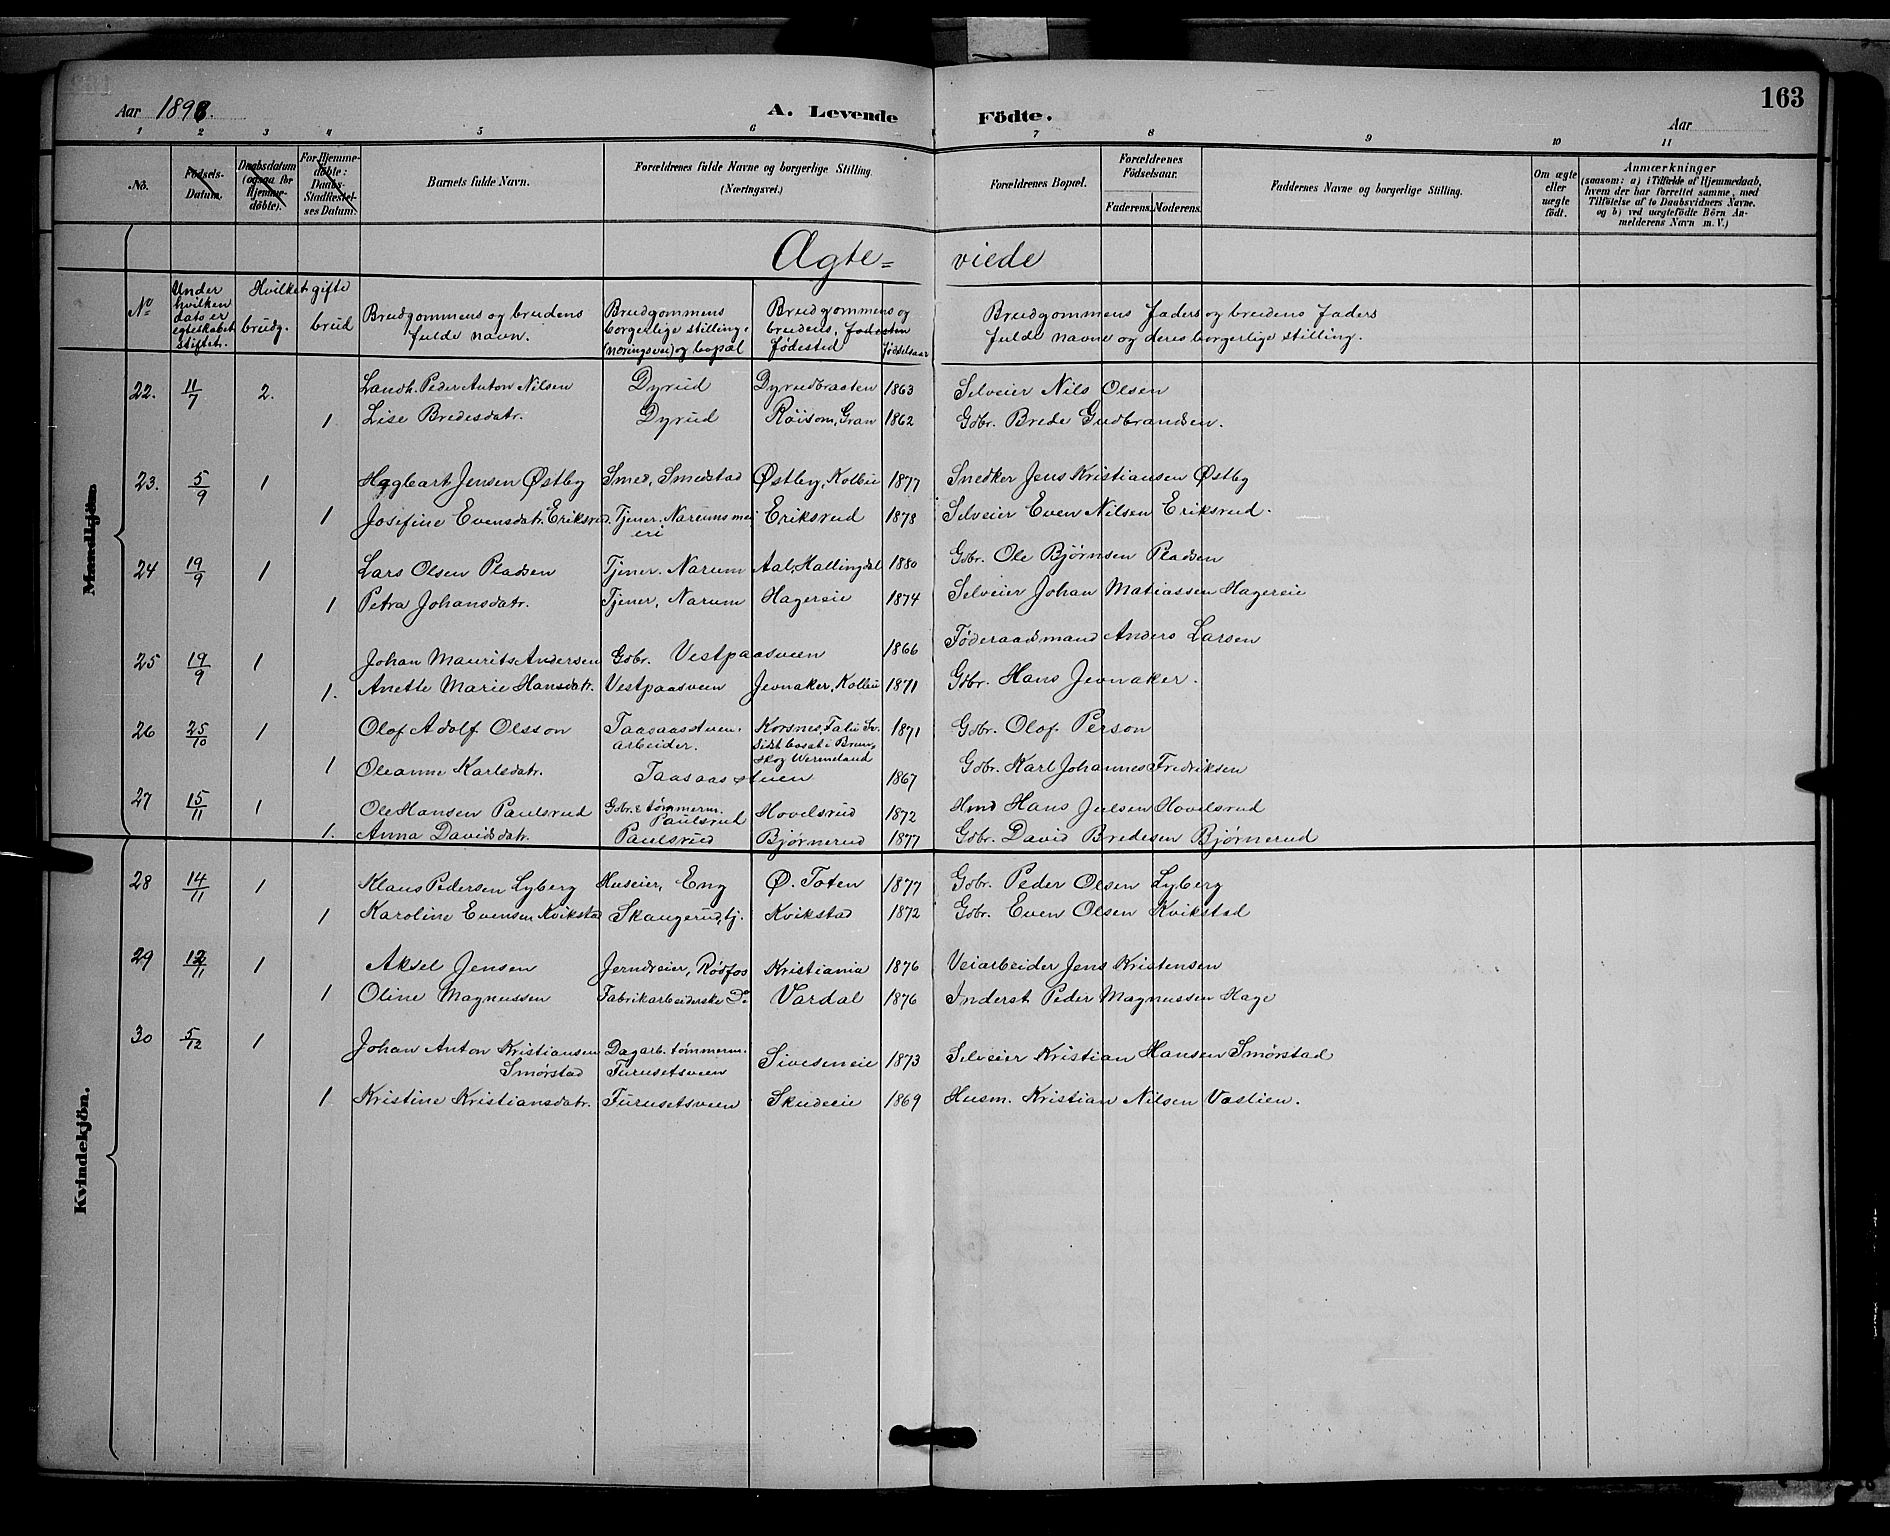 163
Aar 1898. A. Levende Födte. Aar
1 2 3 4 5 6 7 8 9 10 11
No. Fødsels-Datum. Daabsdatum (ogsaa for Hjemme-døbte). For Hjemme-döbte: Daabs-Stadfæstel-ses Datum. Barnets fulde Navn. Forældrenes fulde Navne og borgerlige Stilling. (Næringsvei.) Forældrenes Bopæl. Forældrenes Födselsaar. Faderens. Moderens. Faddernes Navne og borgerlige Stilling. Om ægte eller uægte födt. Anmærkninger (saasom: a) i Tilfælde af Hjemmedaab, hvem der har forrettet samme, med Tilföielse af to Daabsvidners Navne. og b) ved uægtefödte Börn An-melderens Navn m. V.)
Ægte= viede
No Under hvilken dato er egteskabet stiftet. Hvilket gifte brudg. brud Brudgommens og brudens fulde navn. Brudgommens borgerlige stilling (næringsvei) og bopæl Brudgommens og brudens fødested fødselsaar Brudgommens faders og brudens faders fulde navne og deres borgerlige stilling.
Mandkjön
22. 11/7 2. Landh. Peder Anton Nilsen Dyrud Dyrudbraaten 1863 Selveier Nils Olsen
1 Lise Bredesdatr. Dyrud Røisom, Gran 1862 Gdbr. Brede Gudbrandsen.
23. 5/9 1 Hagbart Jensen Østby Smed, Smedstad Østby, Kolbu 1877 Snedker Jens Kristiansen Østby
1 Josifine Evensdatr. Eriksrud. Tjener. Narums mei eri Eriksrud 1878 Selveier Even Nilsen Eriksrud.
24 19/9 1 Lars Olsen Pladsen Tjener. Narum Aal, Hallingdal 1880 Gdbr. Ole Bjørnsen Pladsen
1 Petra Johansdatr. Tjener, Narum Hagereie 1874 Selveier Johan Matiassen Hagereie
25 19/9 1 Johan Maurits Andersen Gdbr. Vestpaasveen 1866 Føderaadsmand Anders Larsen
1. Anette Marie Hansdatr. Vestpaasveen Jevnaker, Kolbu 1871 Gdbr. Hans Jevnaker.
26 25/10 1 Olof Adolf Olsson Taasaastuen. arbeider. Korsnes, Falu Sv. sidst bosat i Brun skog Wermeland 1871 Gdbr. Olof Person
1 Oleanne Karlsdatr. Taasaastuen 1867 Gdbr. Karl Johannes Fredriksen
27 15/11 1 Ole Hansen Paulsrud Gdbr. & tømmerm. Paulsrud Hovelsrud 1872 Hmd Hans Julsen Hovelsrud
1. Anna Davidsdatr. Paulsrud Bjørnerud 1877 Gdbr. David Bredesen Bjørnerud
Kvindekjön.
28 14/11 1 Klaus Pedersen Lyberg Huseier, Eng Ø. Toten 1877 Gdbr. Peder Olsen Lyberg
1 Karoline Evensen Kvikstad Skangerud, tj. Kvikstad 1872 Gdbr. Even Olsen Kvikstad
29 12/11 1 Aksel Jensen Jerndreier, Rødfos Kristiania 1876 Veiarbeider Jens Kristensen
1 Oline Magnussen Fabrikarbeiderske Do Vardal 1876 Inderst Peder Magnussen Hage
30 5/12 1 Johan Anton Kristiansen Smørstad Dagarb. tømmerm. Furusetsveen Sivesineie 1873 Selveier Kristian Hansen Smørstad
1 Kristine Kristiansdatr. Furusetsveen Skudeeie 1869 Husm. Kristian Nilsen Vaslien.